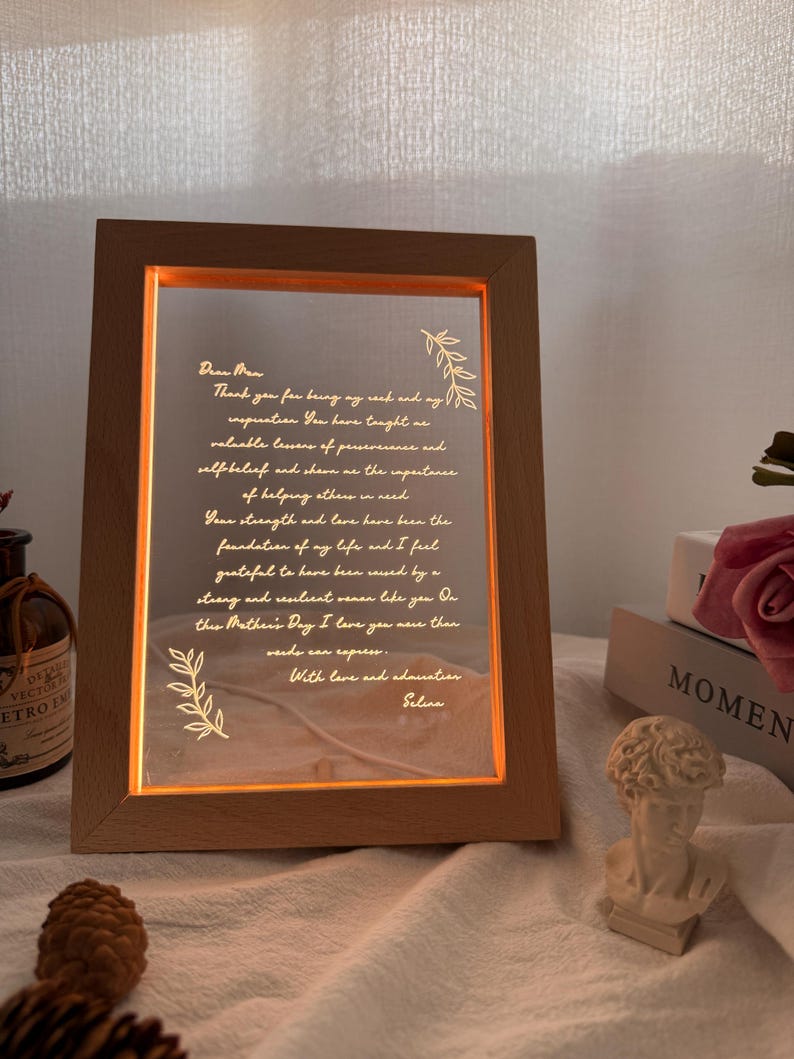 Dear Mom,
Thank you for being my rock and my
inspiration You have taught me
valuable lessons of perseverance and
self-belief and shown me the importance
of helping others in need
Your strength and love have been the
foundation of my life, and I feel
grateful to have been raised by a
strong and resilient woman like you On
this Mother's Day I love you more than
words can express.
With love and admiration
Selina
DETAILED
VECTOR
ETRO EM
MOMEN